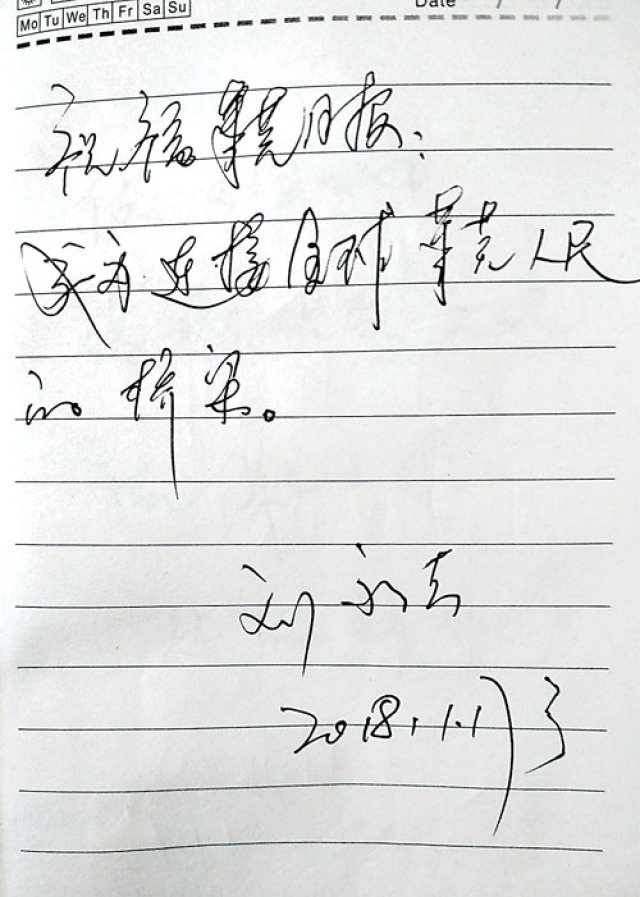 Mo Tu We Th Fr Sa Su
Date / /
祝福 日报:
成为连接全球 人民
的桥梁。
刘永
2018.1.1